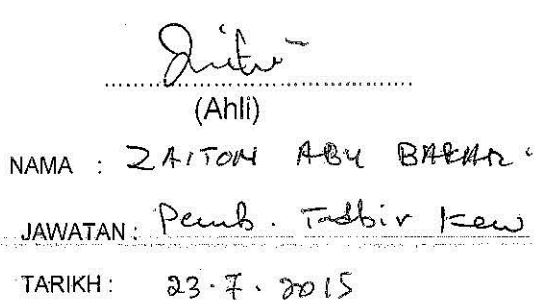 (Ahli)
NAMA : ZAITON ABU BAKAR
JAWATAN : Pemb. Tadbir Kew
TARIKH : 23.7.2015